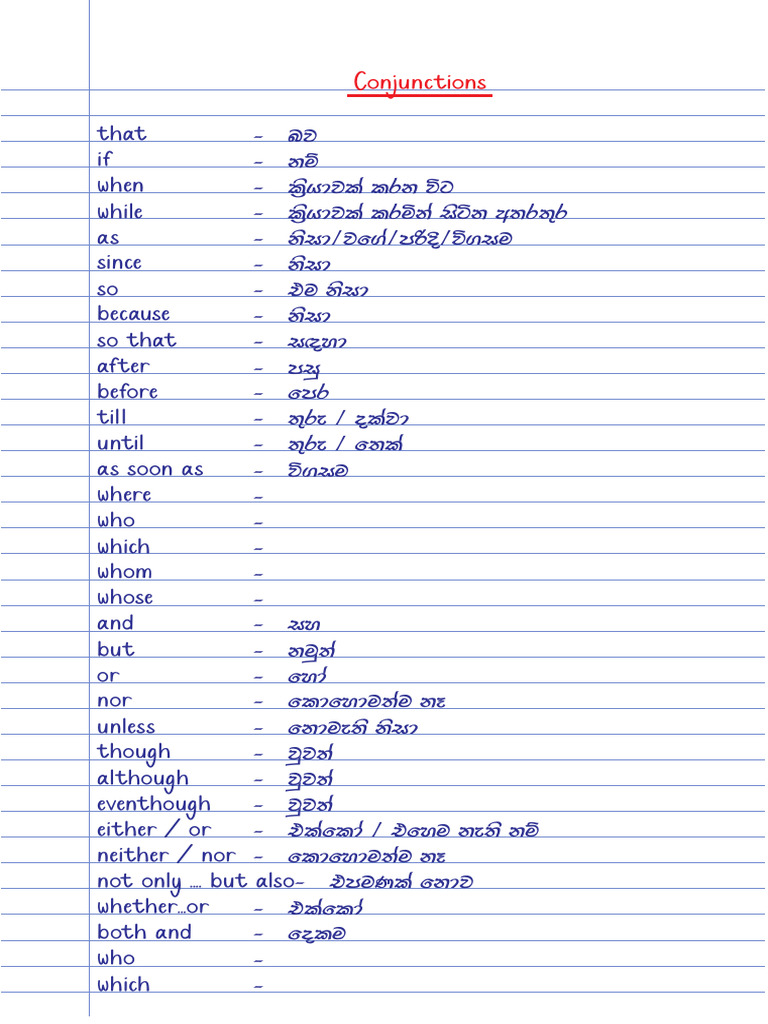 Conjunctions
that - බව
if - නම්
when - ක්‍රියාවක් කරන විට
while - ක්‍රියාවක් කරමින් සිටින අතරතුර
as - නිසා/වගේ/පරිදි/විගසම
since - නිසා
so - එම නිසා
because - නිසා
so that - සඳහා
after - පසු
before - පෙර
till - තුරු / දක්වා
until - තුරු / තෙක්
as soon as - විගසම
where -
who -
which -
whom -
whose -
and - සහ
but - නමුත්
or - හෝ
nor - කොහොමත්ම නෑ
unless - නොමැති නිසා
though - වුවත්
although - වුවත්
eventhough - වුවත්
either / or - එක්කෝ / එහෙම නැති නම්
neither / nor - කොහොමත්ම නෑ
not only .... but also- එපමණක් නොව
whether...or - එක්කෝ
both and - දෙකම
who -
which -